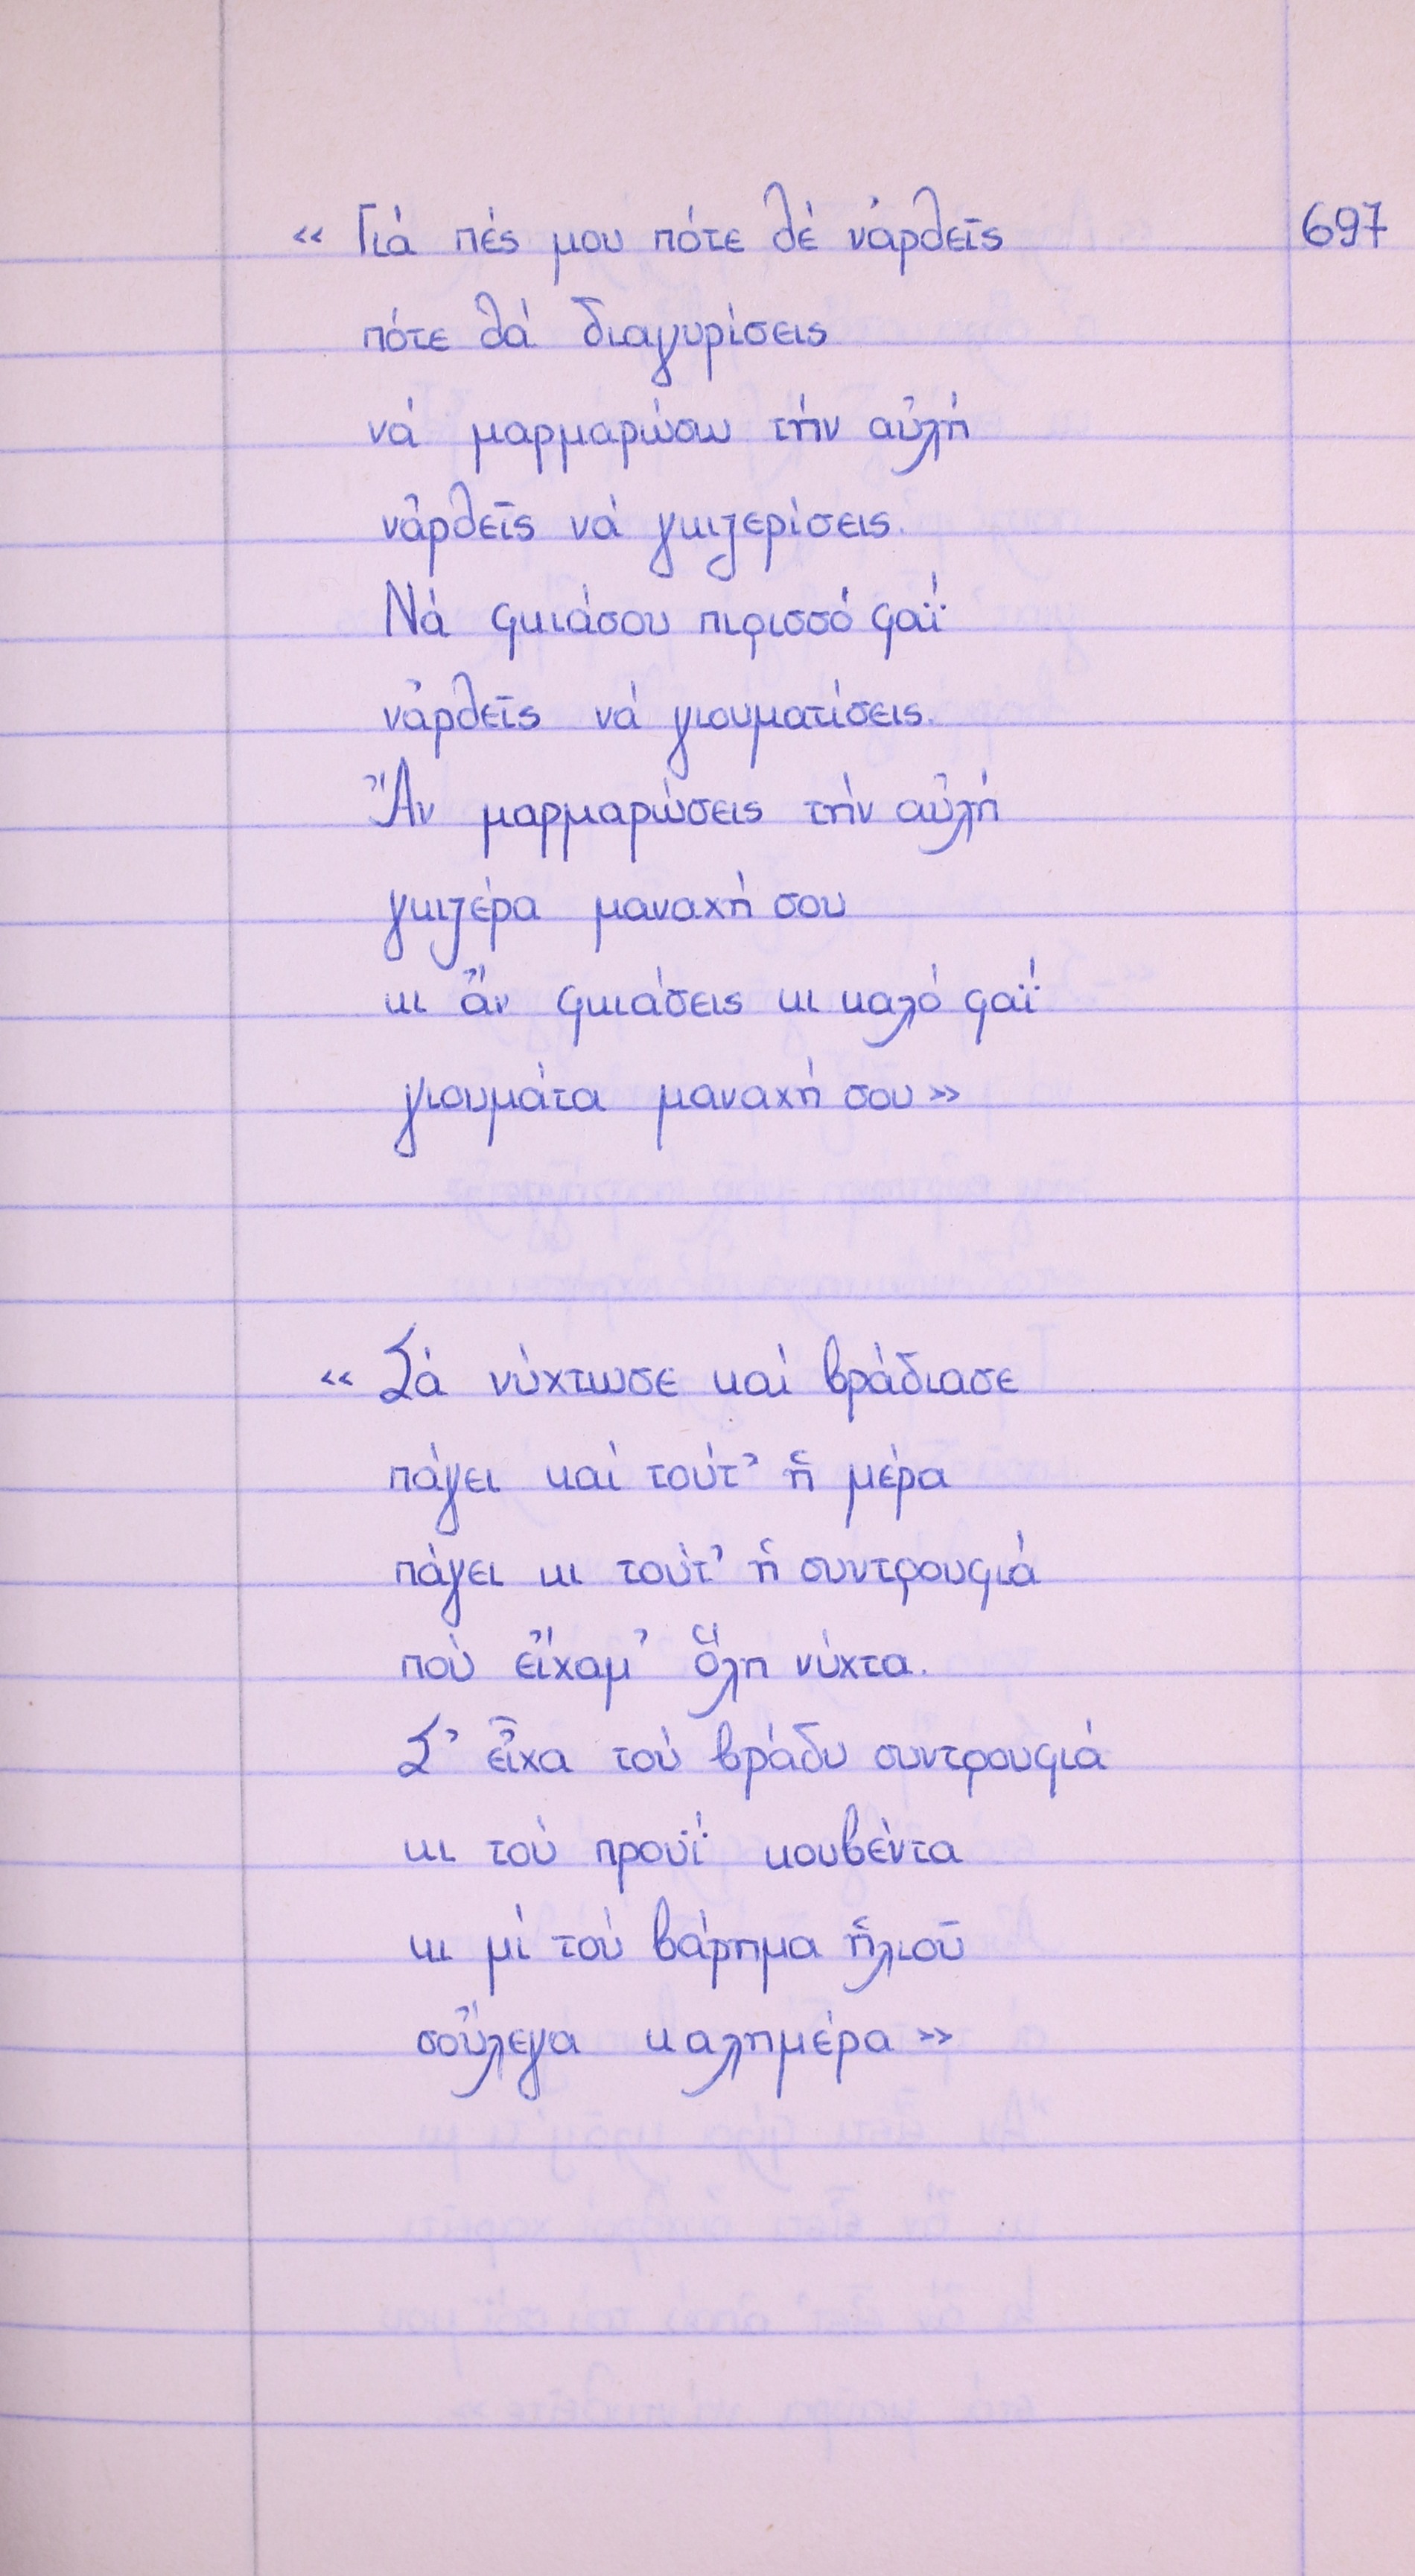 « Γιά πές μου πότε θέ νἀρθεῖς 697
πότε θά διαγυρίσεις
νά μαρμαρώσω τήν αὐλή
νἀρθεῖς νά γκιζερίσεις.
Νά φκιάσου πιρισσό φαΐ
νἀρθεῖς νά γιουματίσεις.
Ἄν μαρμαρώσεις τήν αὐλή
γκιζέρα μαναχή σου
κι ἄν φκιάσεις κι καλό φαΐ
γιουμάτα μαναχή σου»
« Σά νύχτωσε καί βράδιασε
πάγει καί τούτ' ἡ μέρα
πάγει κι τούτ' ἡ συντρουφιά
πού εἴχαμ' ὅλη νύχτα.
Σ' εἶχα τού βράδυ συντρουφιά
κι τού προυΐ κουβέντα
κι μί τού βάρημα ἡλιοῦ
σοὔλεγα καλημέρα»